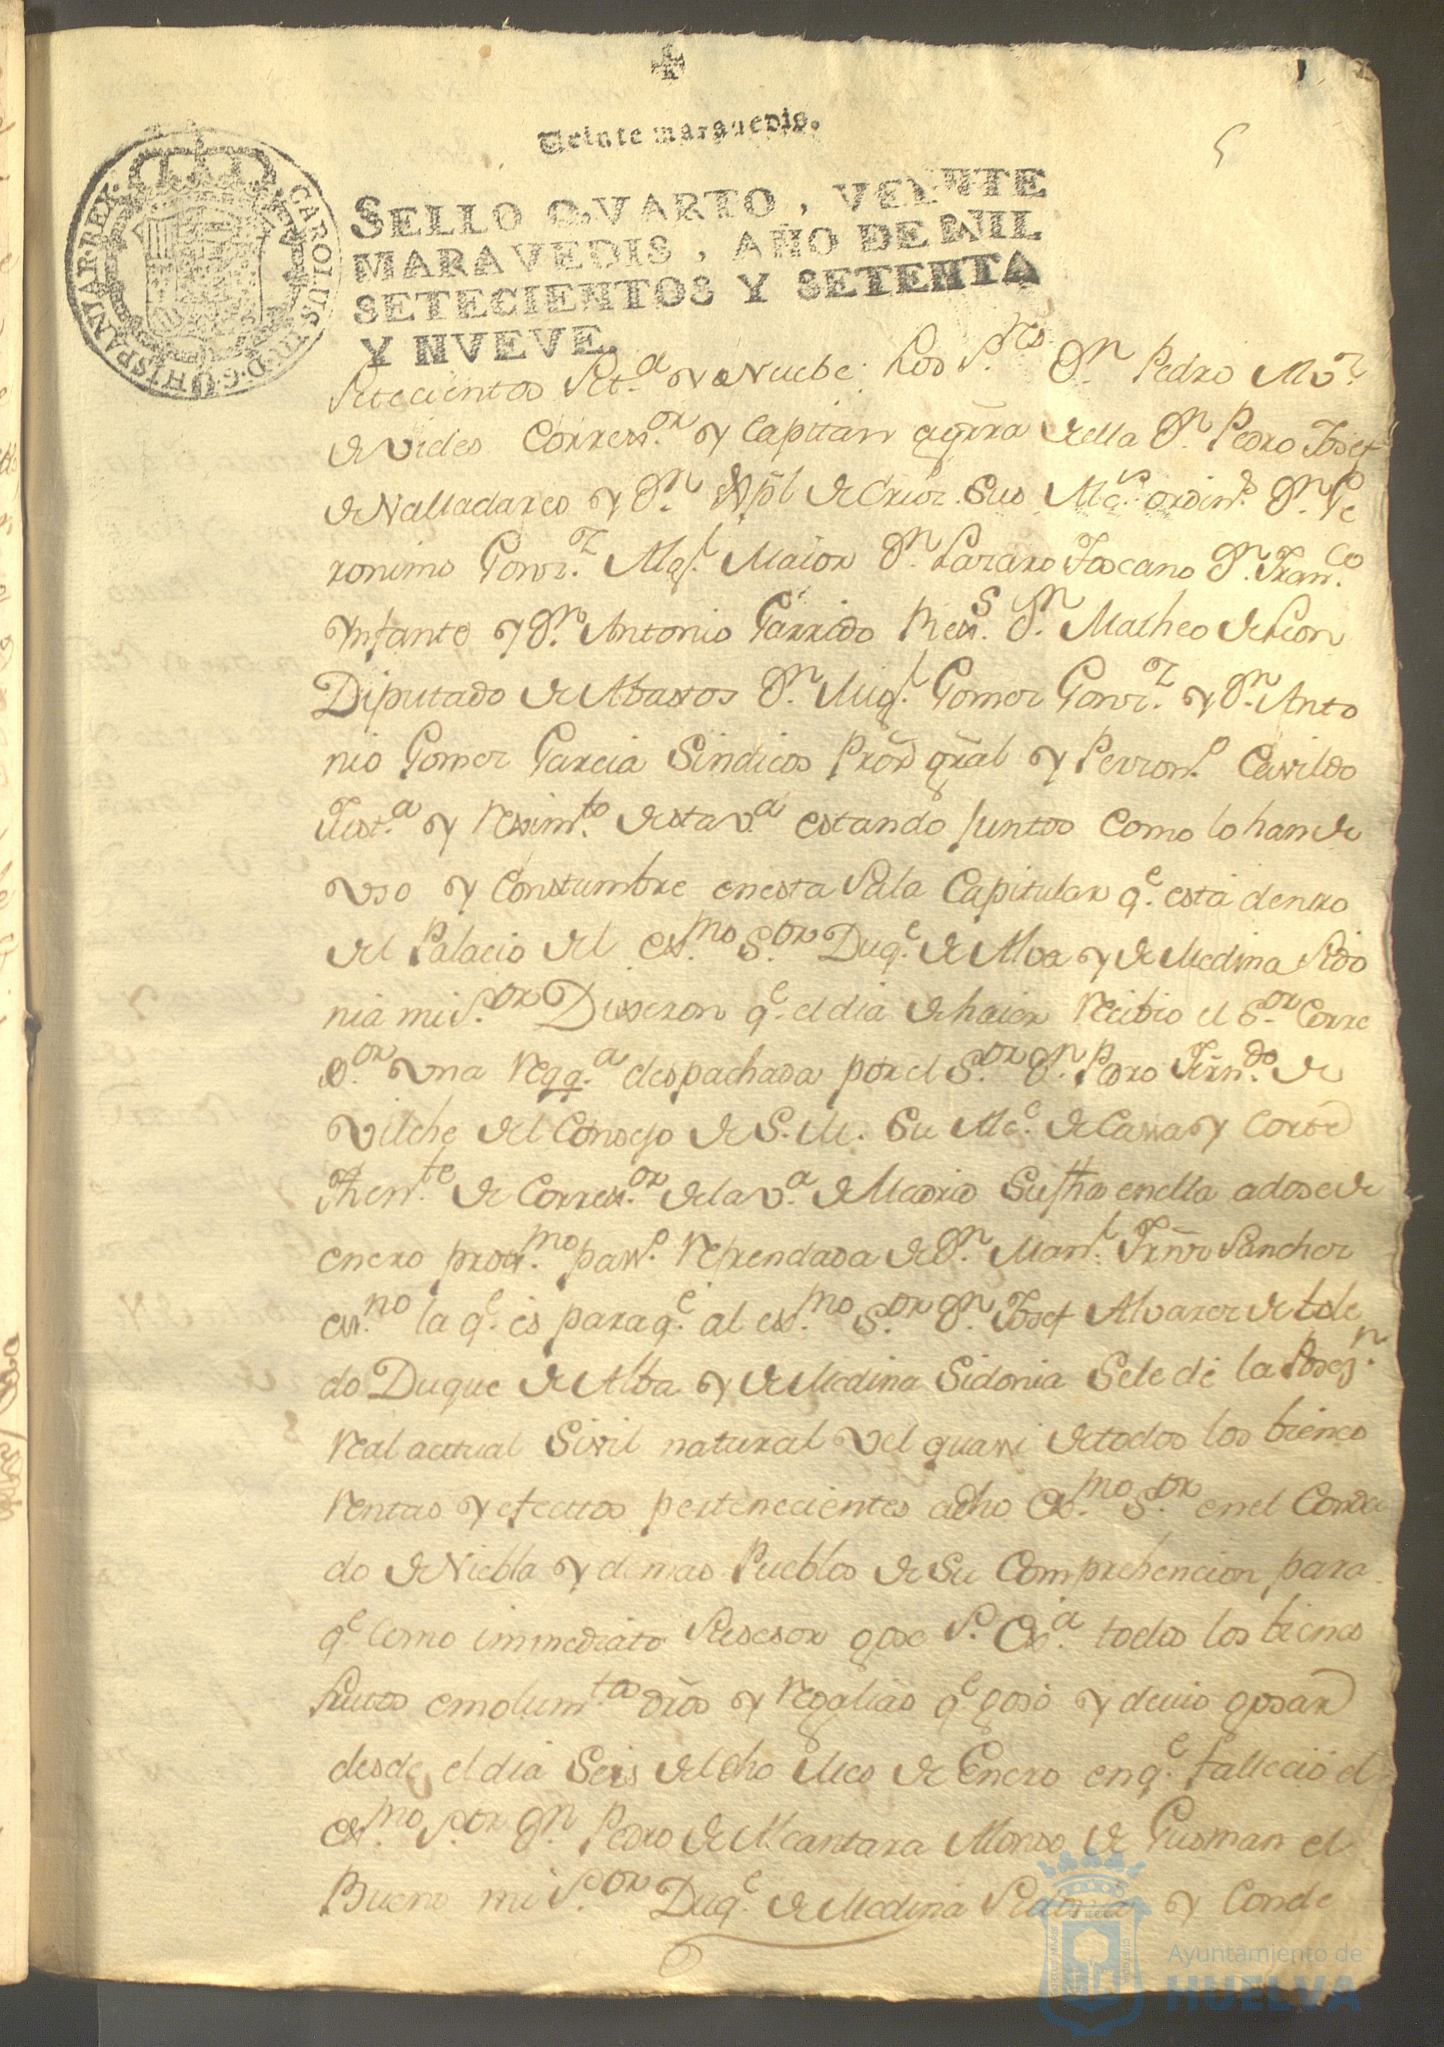 Veinte maravedis.
5
SELLO QVARTO, VEINTE
MARAVEDIS, AÑO DE MIL
SETECIENTOS Y SETENTA
Y NVEVE.
CAROLUS III D.G. HISPANIAR. REX.
Setecientos Setᵃ y Nuebe Los S.ʳᵉˢ Dⁿ Pedro
Correx.ᵒʳ y Capitan a grra della Dⁿ Pedro Josef
de Valladares y Dⁿ de Sus Alc.ˢ ordin.ˢ Dⁿ Ge
ronimo Gonz.ᶻ Alg.ˡ Maior Dⁿ Lazaro Toscano Dⁿ Fran.ᶜᵒ
Ynfante y Dⁿ Antonio Garrido Rex.ˢ Dⁿ Matheo de Leon
Diputado de Abastos Dⁿ Mig.ˡ Gomez Gonz.ᶻ y Dⁿ Anto
nio Gomez Garcia Sindicos Pror gral y Person.º Cavildo
Just.ᵃ y Rexim.ᵗᵒ desta v.ᵃ estando Juntos como lo han de
vso y Constumbre en esta Sala Capitular q.ᵉ está dentro
del Palacio del ex.ᵐᵒ S.ᵒʳ Duq.ᵉ de Alva y de Medina Sido
nia mi S.ᵒʳ Dixeron q.ᵉ el dia de haier recibio el S.ᵒʳ Corre
x.ᵒʳ vna reqq.ᵃ despachada por el S.ᵒʳ Dⁿ Pedro Fern.ᵈᵒ de
Vilche del Consejo de S. M. Su Alc.ᵉ de Cassa y Corte
Then.ᵗᵉ de Correx.ᵒʳ de la v.ᵃ de Madrid Su fha en ella a dose de
enero prox.ᵐᵒ pass.º reprendada de Dⁿ Man.ˡ Frnz Sanchez
ess.ⁿᵒ la q.ᵉ es para q.ᵉ al ex.ᵐᵒ S.ᵒʳ Dⁿ Josef Alvarez de tole
do Duque de Alba y de Medina Sidonia Se le dé la Poses.ⁿ
real actual Sivil natural vel quasi de todos los bienes
rentas y efectos pertenecientes a dho ex.ᵐᵒ S.ᵒʳ en el Conda
do de Niebla y demas Pueblos de Su Comprehencion para
q.ᵉ como immediato Susesor gose S. Ex.ᵃ todos los bienes
frutos emolum.ᵗᵒˢ dros y regalias q.ᵉ gosó y devio gosar
desde el dia Seis del dho Mes de Enero en q.ᵉ fallecio el
ex.ᵐᵒ S.ᵒʳ Dⁿ Pedro de Alcantara Alonso de Gusman el
Bueno mi S.ᵒʳ Duq.ᵉ de Medina Sidonia y Conde
Ayuntamiento de
HUELVA